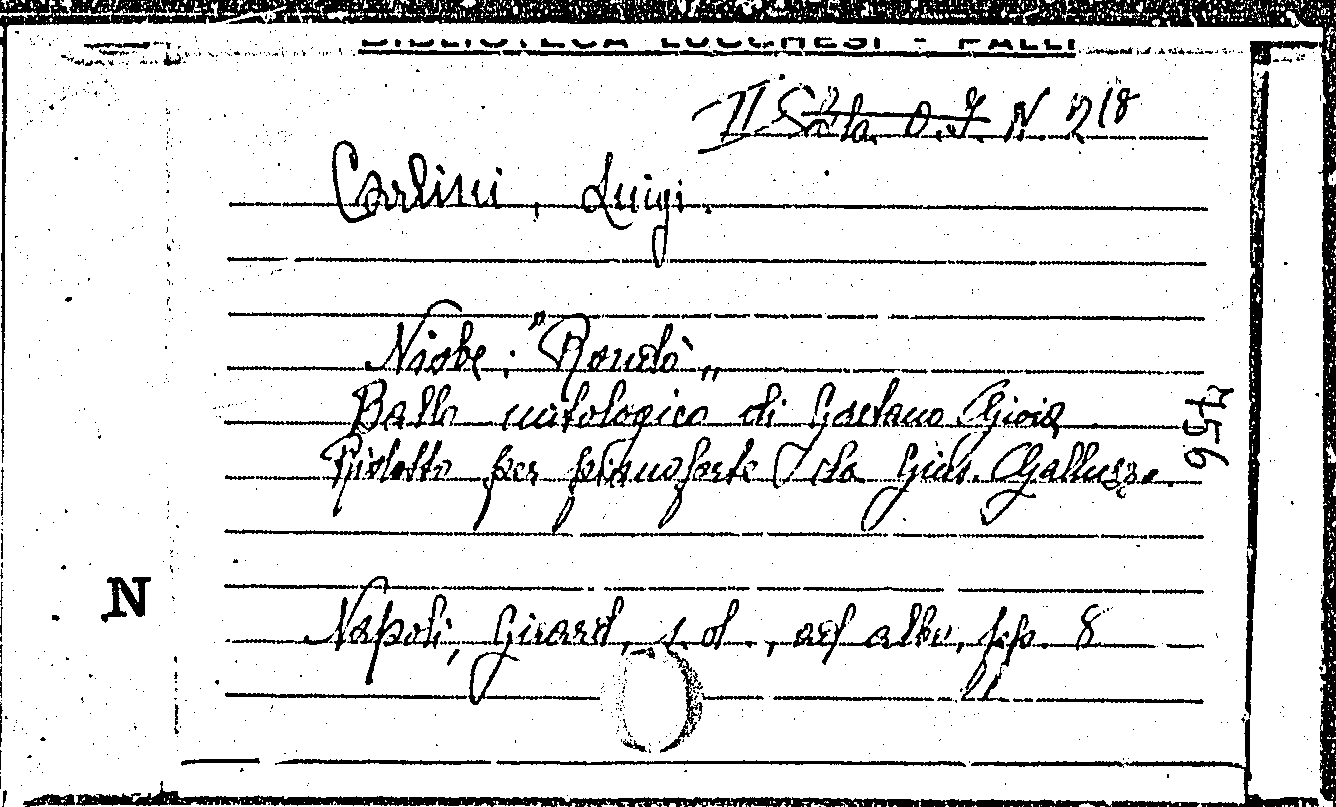 BIBLIOTECA LUCCHESI - PALLI
II Sala O.I N 218
Carlini, Luigi.
Niobe: "Rondò"
Ballo mitologico di Gaetano Gioia
Ridotto per pianoforte da Gius. Galluzzo.
N
Napoli, Girard, s.d., ad albu, pp. 8